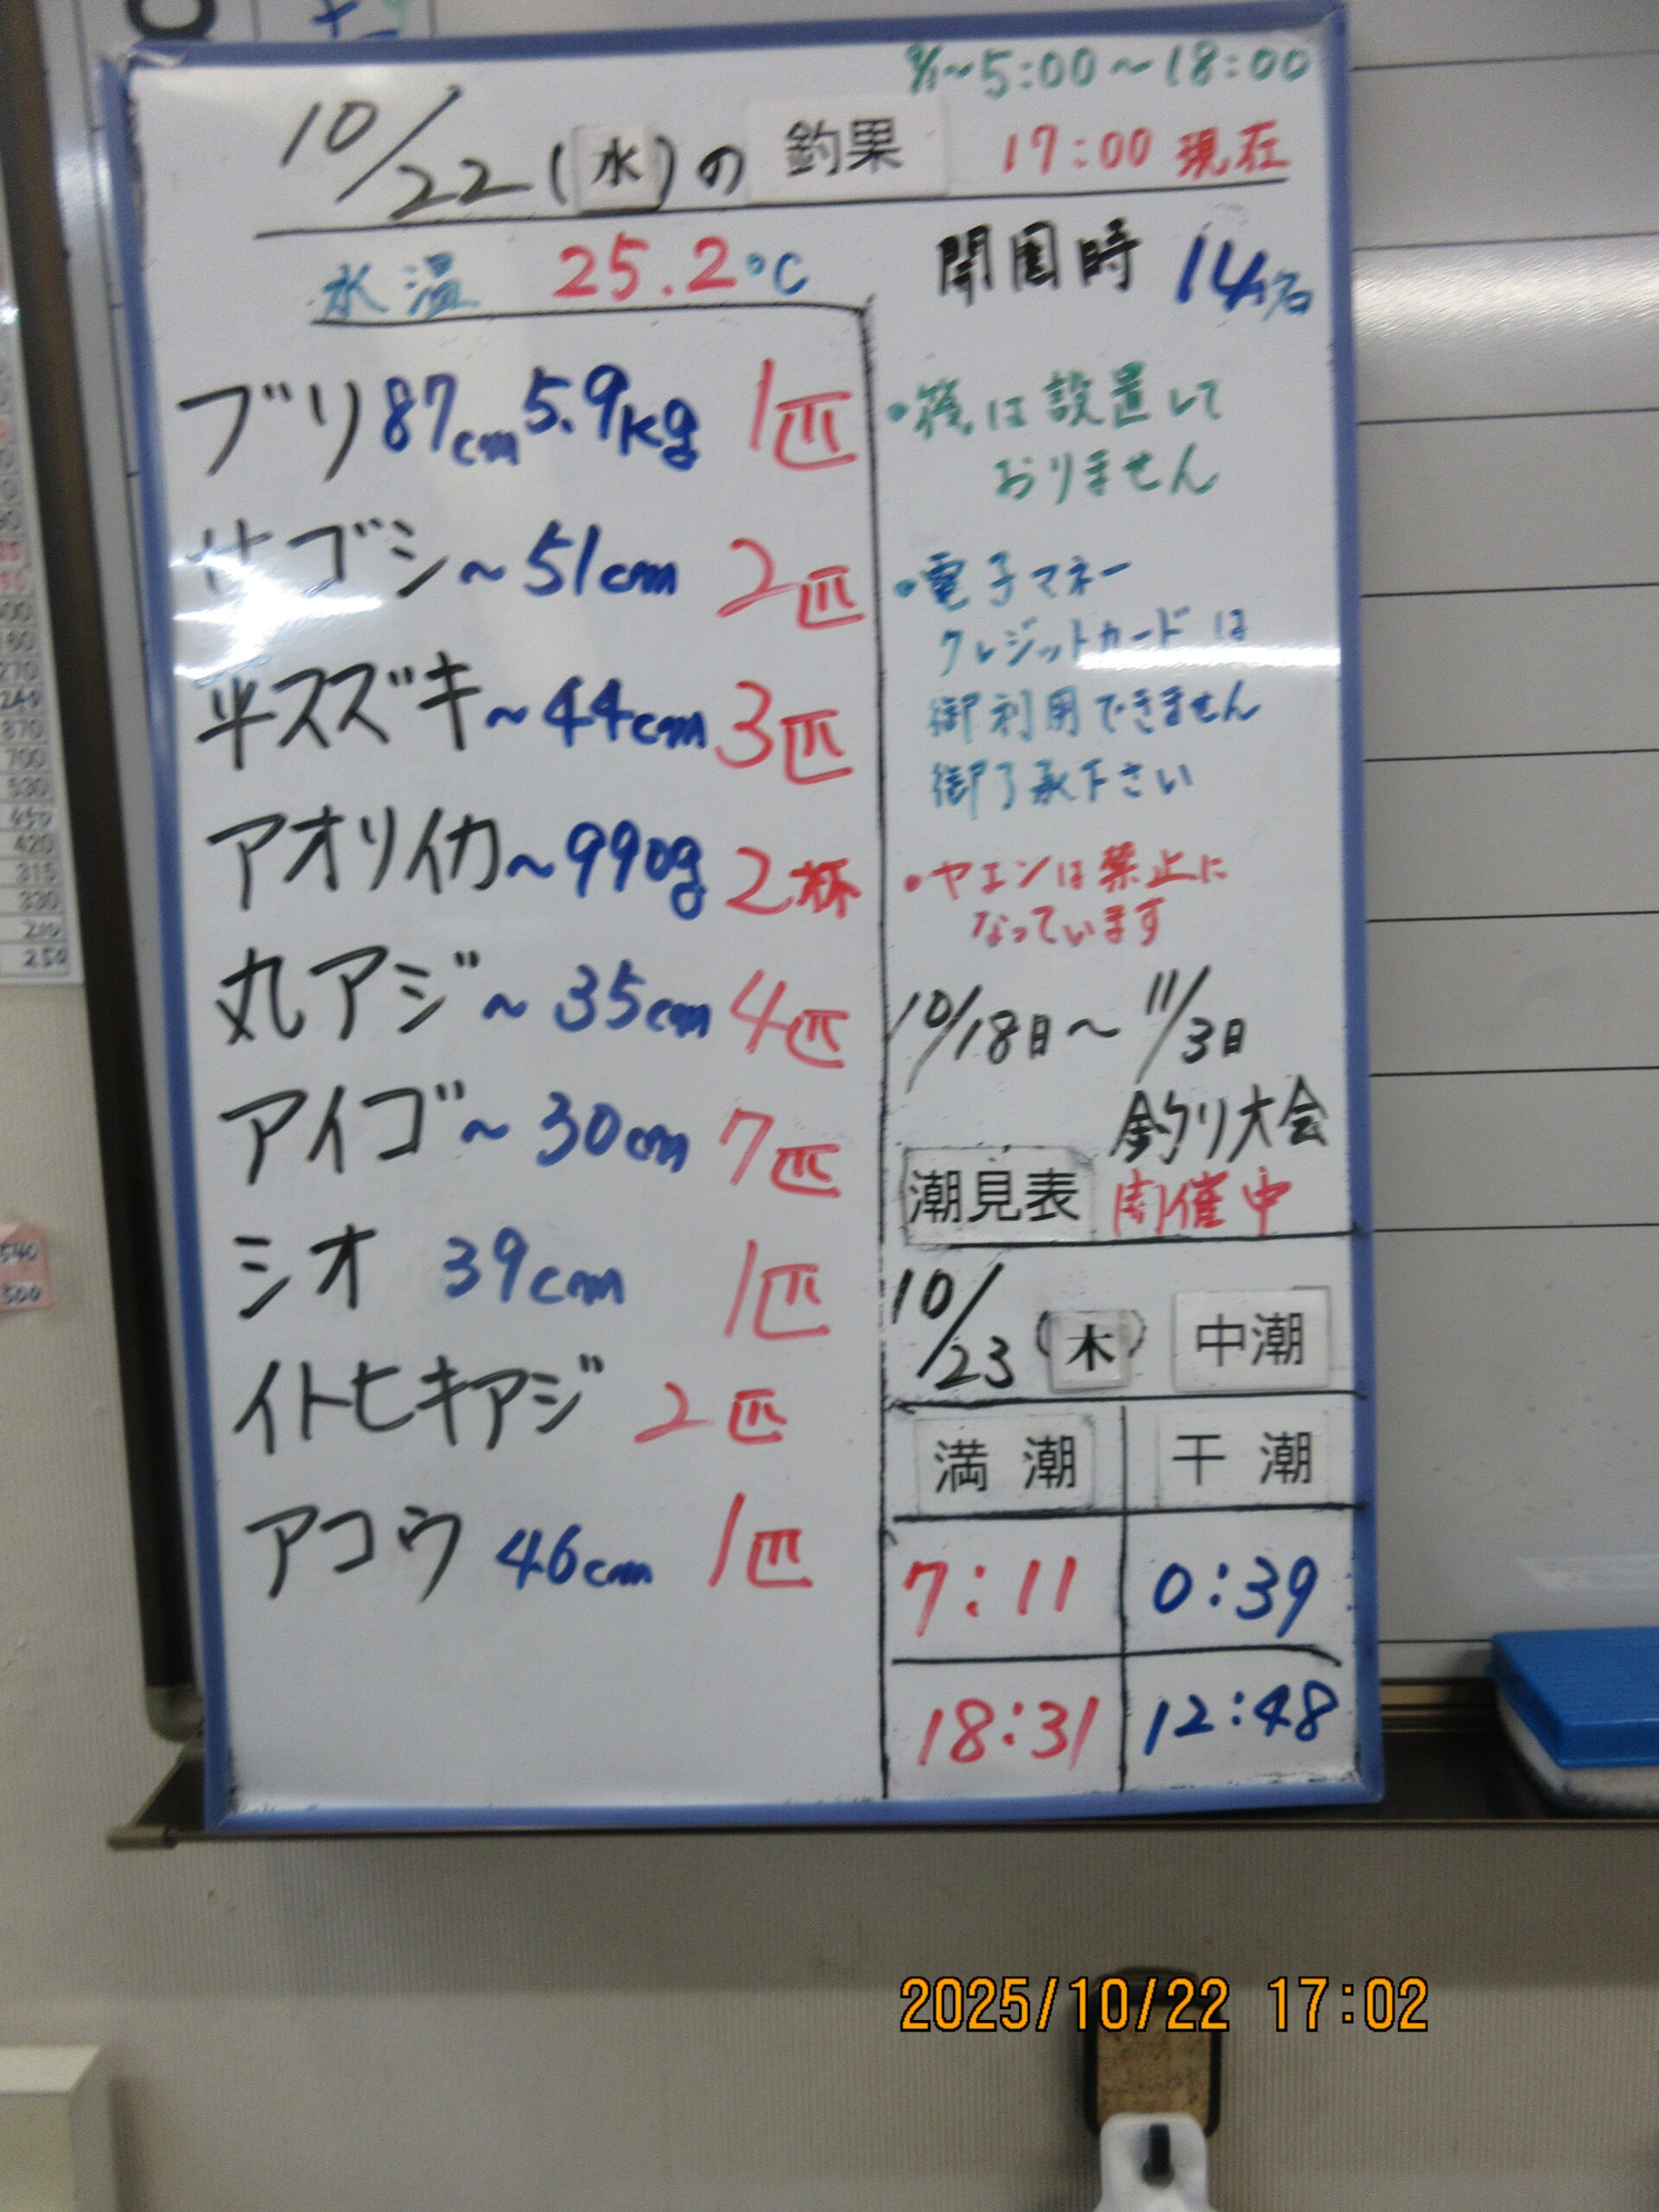 9/1~5:00~18:00
10/22(水)の 釣果 17:00 現在
水温 25.2℃
開園時 14名
ブリ 87cm 5.9kg 1匹
サゴシ~51cm 2匹
平スズキ~44cm 3匹
アオリイカ~990g 2杯
丸アジ~35cm 4匹
アイゴ~30cm 7匹
シオ 39cm 1匹
イトヒキアジ 2匹
アコウ 46cm 1匹
は設置して
おりません
・電子マネー
クレジットカードは
御利用できません
御了承下さい
・ヤエンは禁止に
なっています
10/18日~11/3日
釣り大会
開催中
潮見表
10/23(木) 中潮
満潮 干潮
7:11 0:39
18:31 12:48
870
700
530
450
420
315
330
210
250
540
500
2025/10/22 17:02